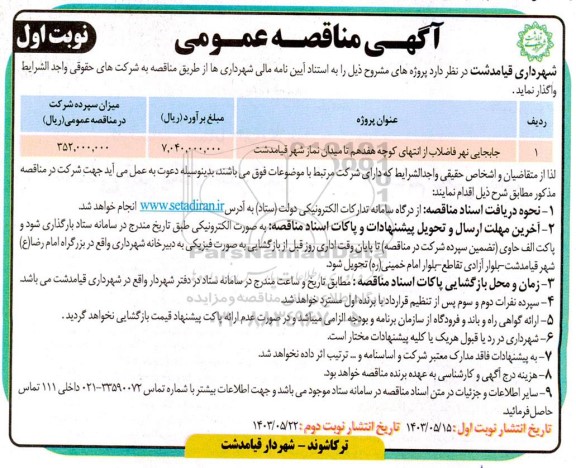 آگهی مناقصه عمومی
نوبت اول
شهرداری قیامدشت در نظر دارد پروژه های مشروح ذیل را به استناد آیین نامه مالی شهرداری ها از طریق مناقصه به شرکت های حقوقی واجد الشرایط
واگذار نماید.
ردیف عنوان پروژه مبلغ برآورد (ریال) میزان سپرده شرکت در مناقصه عمومی(ریال)
۱ جابجایی نهر فاضلاب از انتهای کوچه هفدهم تا میدان نماز شهر قیامدشت ۷,۰۴۰,۰۰۰,۰۰۰ ۳۵۲,۰۰۰,۰۰۰
لذا از متقاضیان و اشخاص حقیقی واجدالشرایط که دارای شرکت مرتبط با موضوعات فوق می باشند، بدینوسیله دعوت به عمل می آید جهت شرکت در مناقصه
مذکور مطابق شرح ذیل اقدام نمایند:
۱- نحوه دریافت اسناد مناقصه: از درگاه سامانه تدارکات الکترونیکی دولت (ستاد) به آدرس www.setadiran.ir انجام خواهد شد.
۲- آخرین مهلت ارسال و تحویل پیشنهادات و پاکات اسناد مناقصه: به صورت الکترونیکی طبق تاریخ مندرج در سامانه ستاد بارگذاری شود و
پاکت الف حاوی (تضمین سپرده شرکت در مناقصه) تا پایان وقت اداری روز قبل از بازگشایی به صورت فیزیکی به دبیرخانه شهرداری واقع در بزرگراه امام رضا(ع)
شهر قیامدشت-بلوار آزادی تقاطع-بلوار امام خمینی(ره) تحویل شود.
۳- زمان و محل بازگشایی پاکات اسناد مناقصه : مطابق تاریخ و ساعت مندرج در سامانه ستاد در دفتر شهردار واقع در شهرداری قیامدشت می باشد.
۴- سپرده نفرات دوم و سوم پس از تنظیم قرارداد با برنده اول مسترد خواهد شد.
۵- ارائه گواهی راه و باند و فرودگاه از سازمان برنامه و بودجه الزامی میباشد و در صورت عدم ارائه پاکت پیشنهاد قیمت بازگشایی نخواهد گردید .
۶- شهرداری در رد یا قبول هریک یا کلیه پیشنهادات مختار است.
۷- به پیشنهادات فاقد مدارک معتبر شرکت و اساسنامه و ... ترتیب اثر داده نخواهد شد.
۸- هزینه درج آگهی و کارشناسی به عهده برنده مناقصه خواهد بود.
۹- سایر اطلاعات و جزئیات در متن اسناد مناقصه در سامانه ستاد موجود می باشد و جهت اطلاعات بیشتر با شماره تماس ۳۳۵۹۰۰۷۲-۰۲۱ داخلی ۱۱۱ تماس
حاصل فرمائید.
تاریخ انتشار نوبت اول : ۱۴۰۳/۰۵/۱۵ تاریخ انتشار نوبت دوم : ۱۴۰۳/۰۵/۲۲
ترکاشوند - شهردار قیامدشت